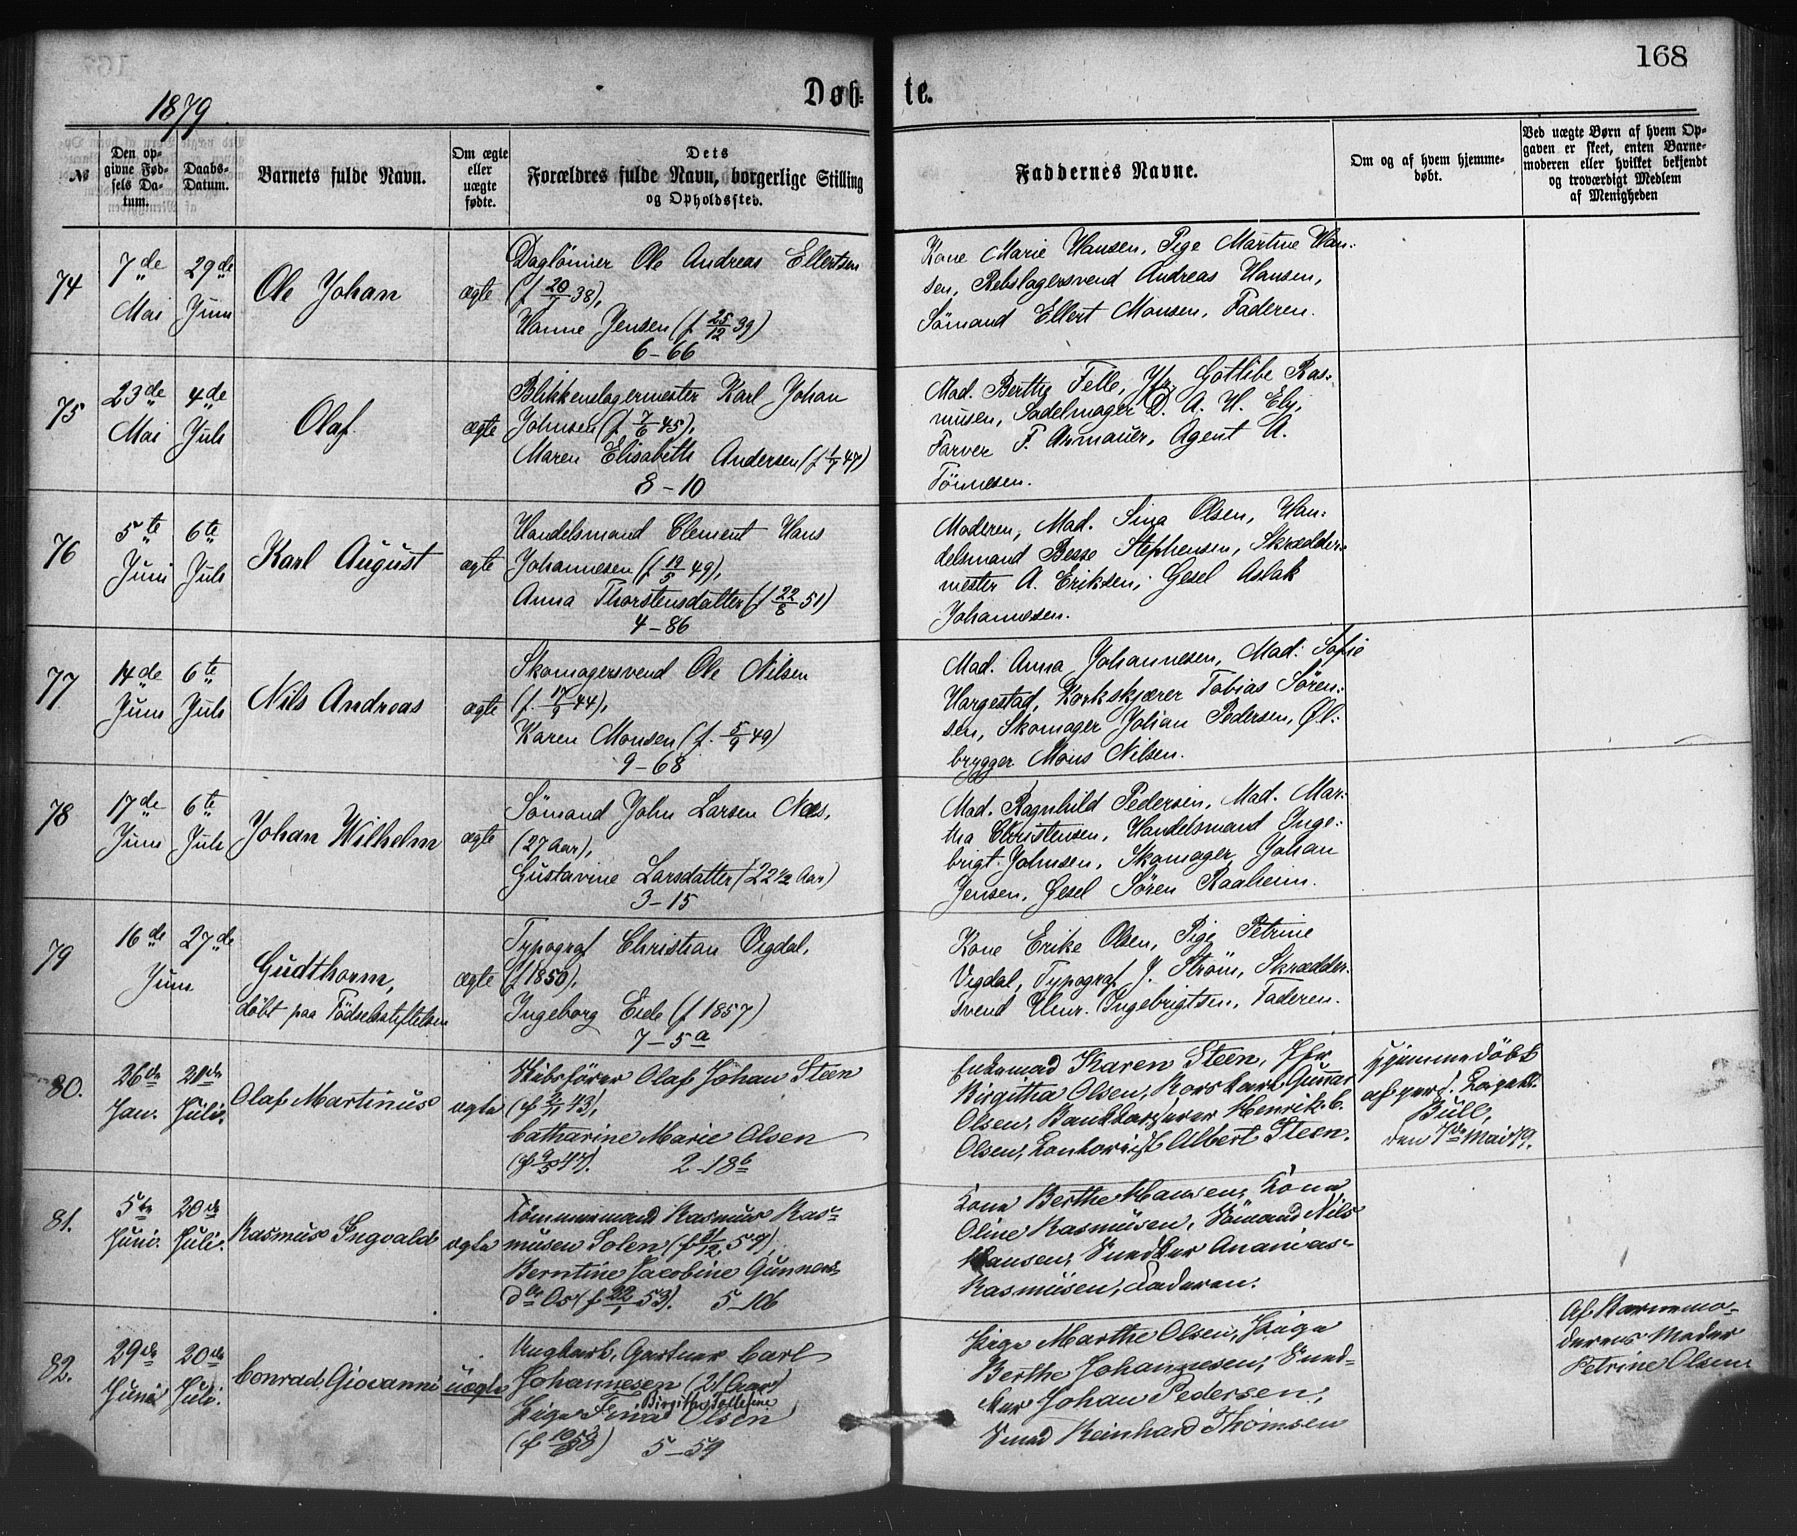 168
Døb- te.
1879
№
Den opgivne Fødsels Datum.
Daabs-Datum.
Barnets fulde Navn.
Om ægte eller uægte fødte.
Dets Forældres fulde Navn, borgerlige Stilling og Opholdssted.
Faddernes Navne.
Om og af hvem hjemmedøbt.
Ved uægte Børn af hvem Opgaven er skeet, enten Barnemoderen eller hvilket bekjendt og troværdigt Medlem af Menigheden
74
7de Mai
29de Juni
Ole Johan
ægte
Daglønner Ole Andreas Ellertsen
(f 20/1 38),
Hanne Jensen (f 25/12 39)
6-66
Kone Marie Hansen, Pige Martine Han-
sen, Rebslagersvend Andreas Hansen,
Sømand Ellert Monsen, Faderen.
75
23de Mai
4de Juli
Olaf
ægte
Blikkenslagermester Karl Johan
Johnsen (f 7/6 45),
Maren Elisabeth Andersen (f 1/7 47)
8-10
Mad. Berthe Felle, Jfr. Gotlibe Ras-
musen, Sadelmager D. A. H. Ely,
Farver F. Armauer, Agent A.
Tönnesen.
76
5te Juni
6te Juli
Karl August
ægte
Handelsmand Clement Hans
Johannesen (f 19/5 49),
Anna Thorstensdatter (f 22/8 51)
4-86
Moderen, Mad. Sina Olsen, Han-
delsmand Besse Stephensen, Skrædder-
mester A. Eriksen, Gesel Aslak
Johannesen.
77
14de Juni
6te Juli
Nils Andreas
ægte
Skomagersvend Ole Nilsen
(f. 17/9 44),
Karen Monsen (f. 5/9 49)
9-68
Mad. Anna Johannesen, Mad. Sofie
Hargestad, Korkskjærer Tobias Sören-
sen, Skomager Johan Pedersen, Øl-
brygger Mons Nilsen.
78
17de Juni
6te Juli
Johan Wilhelm
ægte
Sömand John Larsen Næs,
(27 Aar),
Gustavine Larsdatter (22½ Aar)
3-15
Mad. Ragnhild Pedersen, Mad. Mar-
tha Christensen, Handelsmand Inge-
brigt Johnsen, Skomager Johan
Jensen, Gesel Sören Raaheim.
79
16de 27de
Juni
Gudthorm,
døbt paa Fødselsstiftelsen
ægte
Typograf Christian Vigdal,
(f 1850),
Ingeborg Eide (f 1857)
7-5a
Kone Erike Olsen, Pige Petrine
Vigdal, Typograf J. Ström, Skrædder-
svend Henr. Ingebrigtsen, Faderen.
80.
26de Jan.
20de Juli.
Olaf Martinus
ægte
Skibsfører Olaf Johan Steen
(f 2/1 43),
Catharine Marie Olsen
(f 9/5 47). 2-18b
Enkemad Karen Steen, Jfr
Birgitha Olsen, Gunar
Olsen, Henrik C.
Olsen, Kontorist Albert Steen.
Hjemmedøbt
af pers. Kap.
Bull,
den 7de Mai 79.
81.
5te Juni.
20de Juli.
Rasmus Ingvald
ægte
Tömmermand Rasmus Ras-
musen Solen (f 31/12 57),
Berntine Jacobine Gunners-
dtr Os (f 22/1 53). 5-106
Kone Berthe Hansen, Kone
Oline Rasmüsen, Sömand Nils
Hansen, Ungkar Ananias
Rasmüsen, Faderen.
82.
29de Juni
20de Juli.
Conrad Giovanni
uægte
Ungkarl, Gartner Carl
Johannesen (21 Aar)
Birgitha
Pige Trina Olsen
(f 58) 5-59
Pige Marthe Olsen, Pige
Berthe Johannesen, Ung-
kar Johan Pedersen,
Reinhard Thomsen
Af Barnemo-
derens Moder
Petrine Olsen